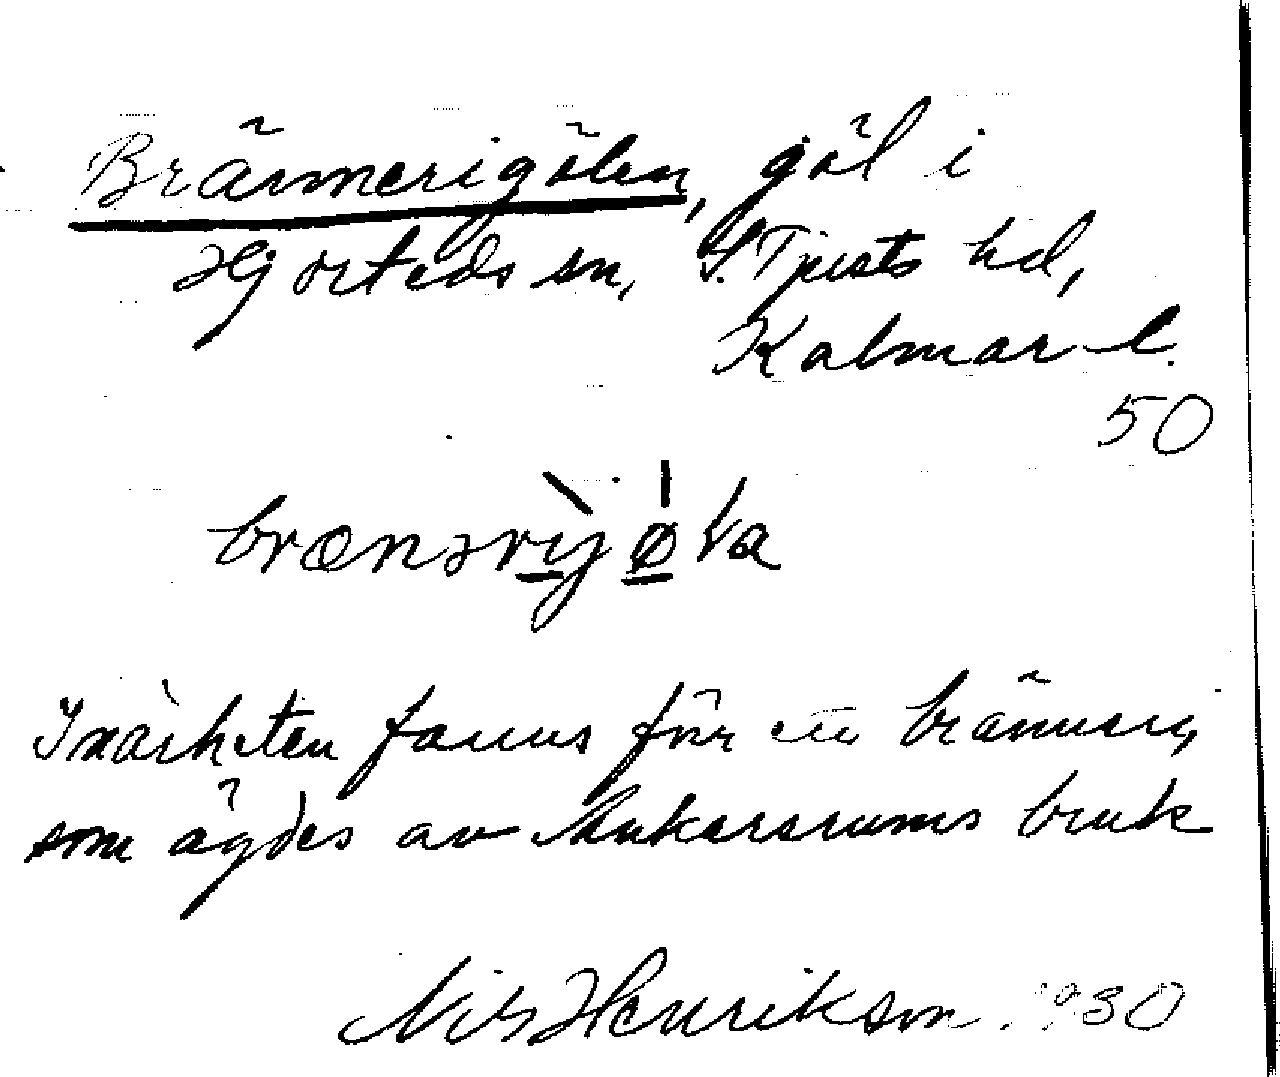 Brännerigölen, göl i
Hjorteds sn, S. Tjusts hd,
Kalmar l.
50
I närheten fanns förr ett bränneri,
som ägdes av Ankarsrums bruk
Nils Henrikson 1930